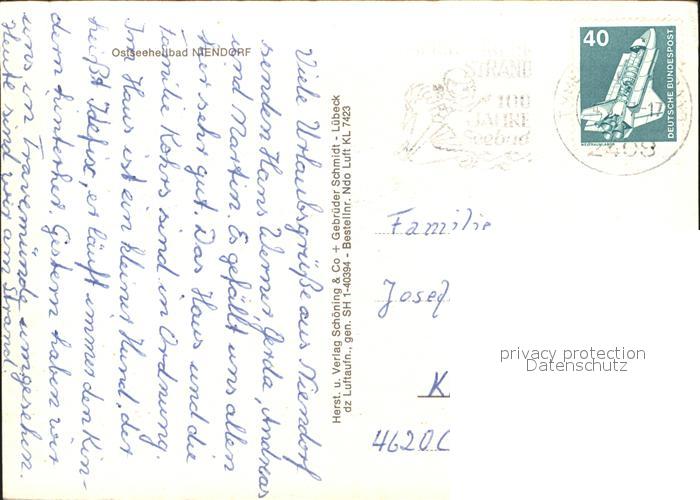 Ostseeheilbad NIENDORF
Viele Urlaubsgrüße aus Niendorf
senden Hans Werner, Gerda, Andreas
und Martin. Es gefällt uns allen
hier sehr gut. Das Haus und die
Familie Kohrs sind in Ordnung.
Im Haus ist ein kleiner Hund, der
heißt Idefix, er läuft immer den Kin-
dern hinterher. Gestern haben wir
uns in Travemünde umgesehen.
Heute sind wir am Strand!
Herst. u. Verlag Schöning & Co + Gebrüder Schmidt - Lübeck
dz Luftaufn., gen. SH 1-40394 - Bestellnr. Ndo Luft KL 7423
STRAND
100
JAHRE
Seebad
40
DEUTSCHE BUNDESPOST
WELTRAUMLABOR
-17
2408
Familie
Josef
K
4620 C
privacy protection
Datenschutz